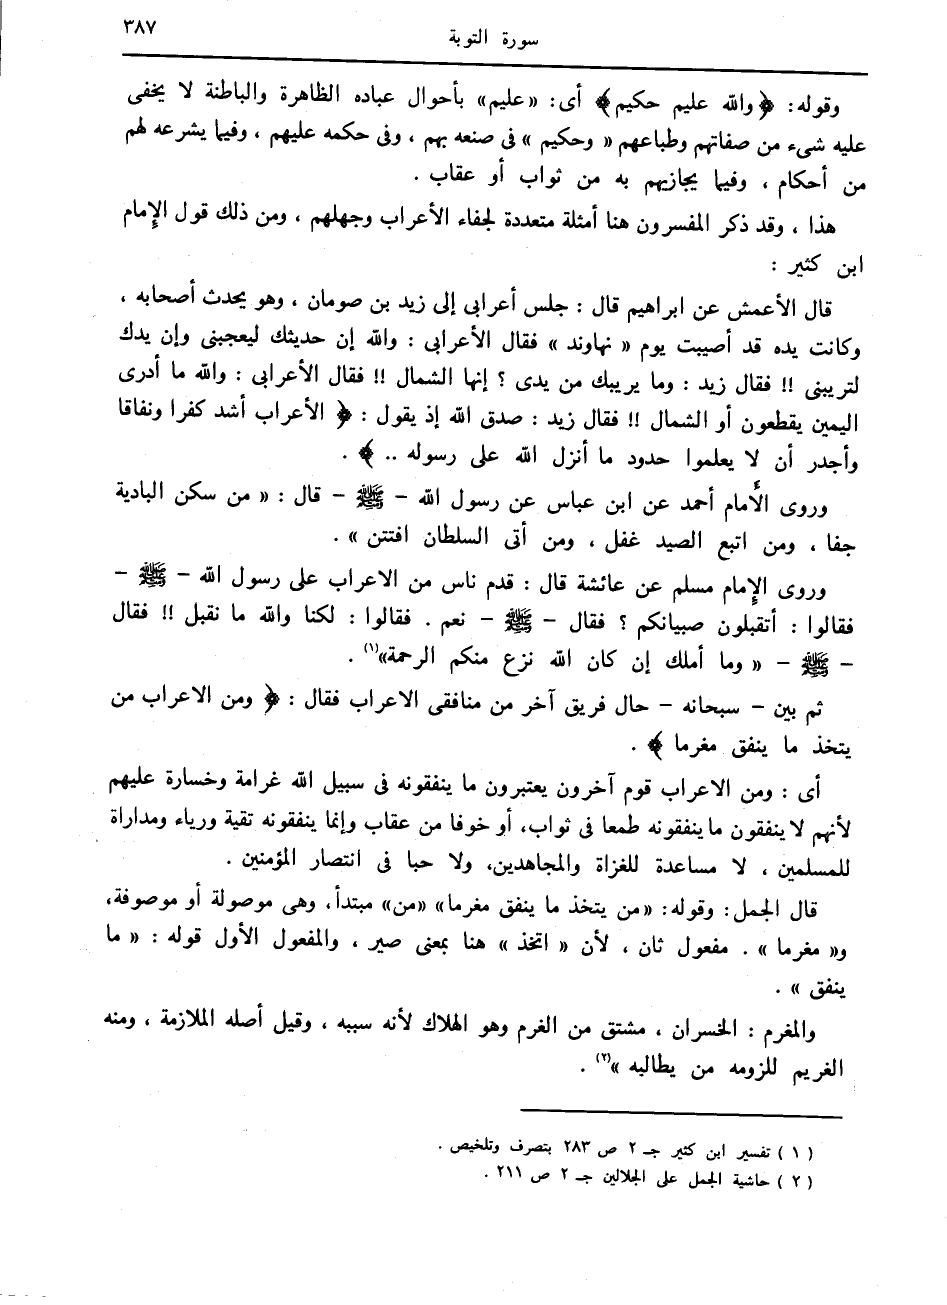 ٣٨٧
سورة التوبة
وقوله: ﴿والله عليم حكيم﴾ أى: «عليم» بأحوال عباده الظاهرة والباطنة لا يخفى
عليه شىء من صفاتهم وطباعهم «وحكيم» فى صنعه بهم ، وفى حكمه عليهم ، وفيما يشرعه لهم
من أحكام ، وفيما يجازيهم به من ثواب أو عقاب .
هذا ، وقد ذكر المفسرون هنا أمثلة متعددة لجفاء الأعراب وجهلهم ، ومن ذلك قول الإمام
ابن كثير :
قال الأعمش عن ابراهيم قال : جلس أعرابى إلى زيد بن صومان ، وهو يحدث أصحابه ،
وكانت يده قد أصيبت يوم « نهاوند » فقال الأعرابى : والله إن حديثك ليعجبنى وإن يدك
لتريبنى !! فقال زيد : وما يريبك من يدى ؟ إنها الشمال !! فقال الأعرابى : والله ما أدرى
اليمين يقطعون أو الشمال !! فقال زيد : صدق الله إذ يقول : ﴿ الأعراب أشد كفرا ونفاقا
وأجدر أن لا يعلموا حدود ما أنزل الله على رسوله .. ﴾ .
وروى الأمام أحمد عن ابن عباس عن رسول الله - ﷺ - قال : « من سكن البادية
جفا ، ومن اتبع الصيد غفل ، ومن أتى السلطان افتتن » .
وروى الإمام مسلم عن عائشة قال : قدم ناس من الاعراب على رسول الله - ﷺ -
فقالوا : أتقبلون صبيانكم ؟ فقال - ﷺ - نعم . فقالوا : لكنا والله ما نقبل !! فقال
- ﷺ - « وما أملك إن كان الله نزع منكم الرحمة»(١) .
ثم بين - سبحانه - حال فريق آخر من منافقى الاعراب فقال : ﴿ ومن الاعراب من
يتخذ ما ينفق مغرما ﴾ .
أى : ومن الاعراب قوم آخرون يعتبرون ما ينفقونه فى سبيل الله غرامة وخسارة عليهم
لأنهم لا ينفقون ما ينفقونه طمعا فى ثواب، أو خوفا من عقاب وإنما ينفقونه تقية ورياء ومداراة
للمسلمين ، لا مساعدة للغزاة والمجاهدين، ولا حبا فى انتصار المؤمنين .
قال الجمل: وقوله: «من يتخذ ما ينفق مغرما» «من» مبتدأ، وهى موصولة أو موصوفة،
و« مغرما » . مفعول ثان ، لأن « اتخذ » هنا بمعنى صير ، والمفعول الأول قوله : « ما
ينفق » .
والمغرم : الخسران ، مشتق من الغرم وهو الهلاك لأنه سببه ، وقيل أصله الملازمة ، ومنه
الغريم للزومه من يطالبه »(٢) .
( ١ ) تفسير ابن كثير جـ ٢ ص ٢٨٣ بتصرف وتلخيص .
( ٢ ) حاشية الجمل على الجلالين جـ ٢ ص ٢١١ .